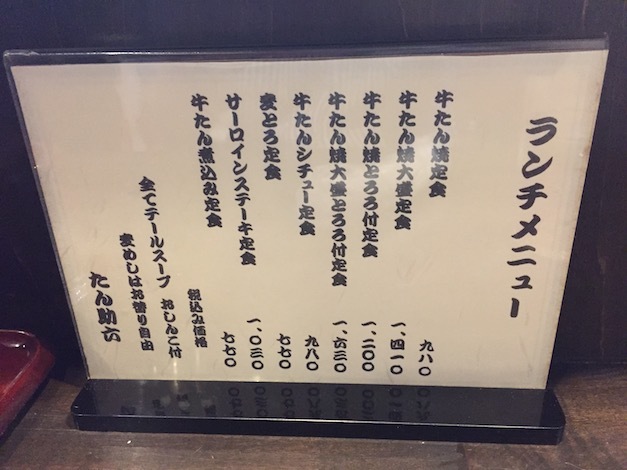 ランチメニュー
牛たん焼定食 九八〇
牛たん焼大盛定食 一、四一〇
牛たん焼とろろ付定食 一、二〇〇
牛たん焼大盛とろろ付定食 一、六三〇
牛たんシチュー定食 九八〇
麦とろ定食 七七〇
サーロインステーキ定食 一、〇三〇
牛たん煮込み定食 七七〇
税込み価格
全てテールスープ おしんこ付
麦めしはお替り自由
たん助六